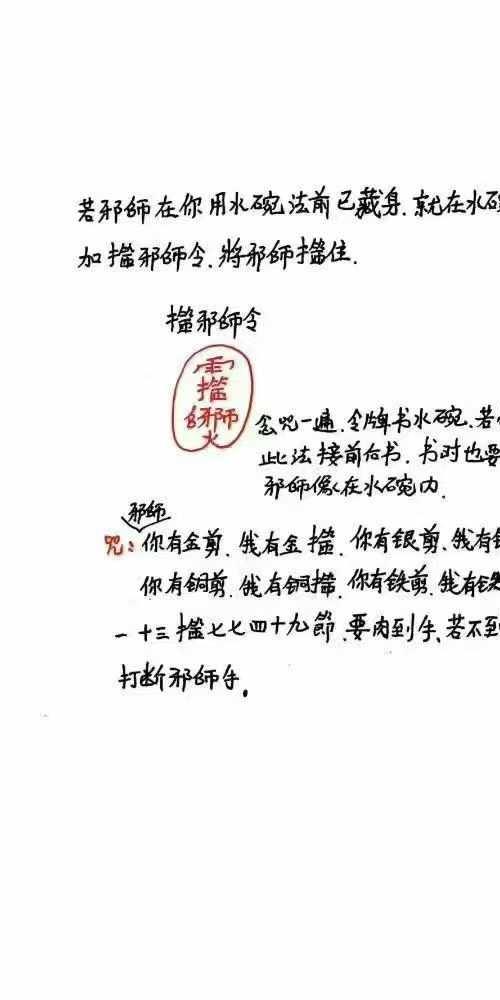 若邪師在你用水碗法前已藏身.就在水碗
加擋邪師令.將邪師擋住.
擋邪師令
擋
邪師
火
念咒一遍.令牌书水碗.若
此法接前右书.书时也要
邪師像在水碗内.
邪師
咒:你有金剪.我有金擋.你有银剪.我有
你有铜剪.我有铜擋.你有铁剪.我有铁
一十三擋七七四十九節.要肉到手.若不到
打断邪師手.